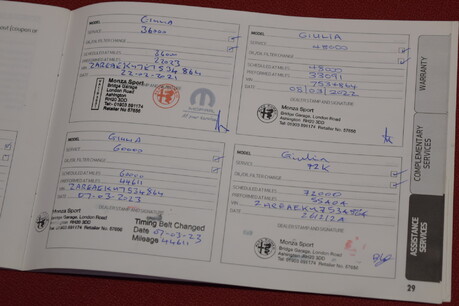 MODEL GIULIA
SERVICE 36000
OIL/OIL FILTER CHANGE
SCHEDULED AT MILES 36000
PERFORMED AT MILES 22023
DATE 22-02-2021
Monza Sport
Bridge Garage,
London Road
Ashington
RH20 3DD
Tel: 01903 891174
Retailer No: 57656
MODEL GIULIA
SERVICE 48000
OIL/OIL FILTER CHANGE
SCHEDULED AT MILES 48000
PERFORMED AT MILES 33091
DATE 05/03/2022
DEALER STAMP AND SIGNATURE
Monza Sport
Bridge Garage, London Road
Ashington, RH20 3DD
Tel: 01903 891174 Retailer No. 57656
MODEL Giulia
SERVICE 60000
OIL/OIL FILTER CHANGE
SCHEDULED AT MILES 60000
PERFORMED AT MILES 44611
DATE 07-03-2023
DEALER STAMP AND SIGNATURE
Monza Sport
Bridge Garage, London Road
Ashington, RH20 3DD
Tel: 01903 891174 Retailer No. 57656
Timing Belt Changed
Date 07-03-23
Mileage 44611
MODEL Giulia
SERVICE 72K
OIL/OIL FILTER CHANGE
SCHEDULED AT MILES 72000
PERFORMED AT MILES
DATE
DEALER STAMP AND SIGNATURE
Monza Sport
Bridge Garage, London Road
Ashington, RH20 3DD
Tel: 01903 891174 Retailer No. 57656
WARRANTY
COMPLEMENTARY
SERVICES
ASSISTANCE
SERVICES
29